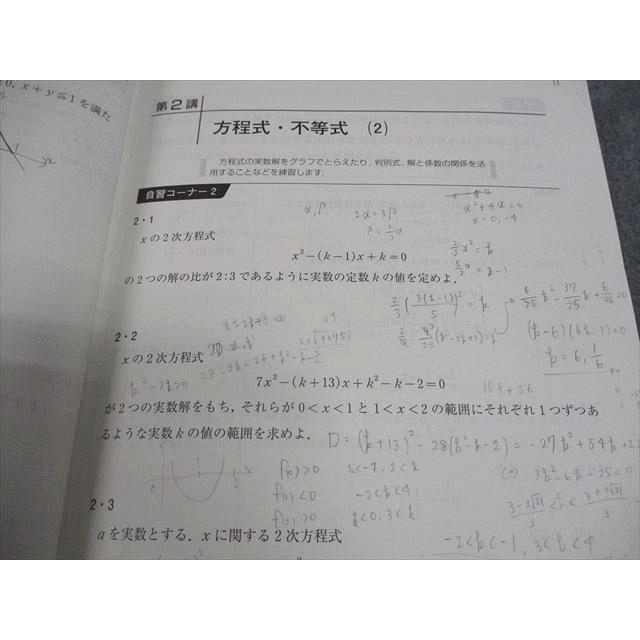 0, x+y≦1を満た
第2講
方程式・不等式 (2)
方程式の実数解をグラフでとらえたり, 判別式, 解と係数の関係を活
用することなどを練習します.
自習コーナー2
2・1
xの2次方程式
x²−(k−1)x+k=0
の2つの解の比が2:3であるように実数の定数kの値を定めよ.
α, β
2α=3β
β=2/3α
x²+4x=0
x=0, -4
2/3α²=k
5/3α=k-1
2/3(3(k-1)/5)²=k
6/25k²-37/25k+6/25=0
(k-6)(6k-1)=0
k=6, 1/6
2・2
xの2次方程式
7x²−(k+13)x+k²−k−2=0
が2つの実数解をもち, それらが0<x<1と1<x<2の範囲にそれぞれ1つずつあ
るような実数kの値の範囲を求めよ.
169+56
D=(k+13)²-28(k²-k-2)=-27k²+54k+22
3k²-6k-25<0
f(0)>0 k<-1, 2<k
f(1)<0 -2<k<4
f(2)>0 k<0, 3<k
-2<k<-1, 3<k<4
0 1 2
2・3
aを実数とする. xに関する2次方程式